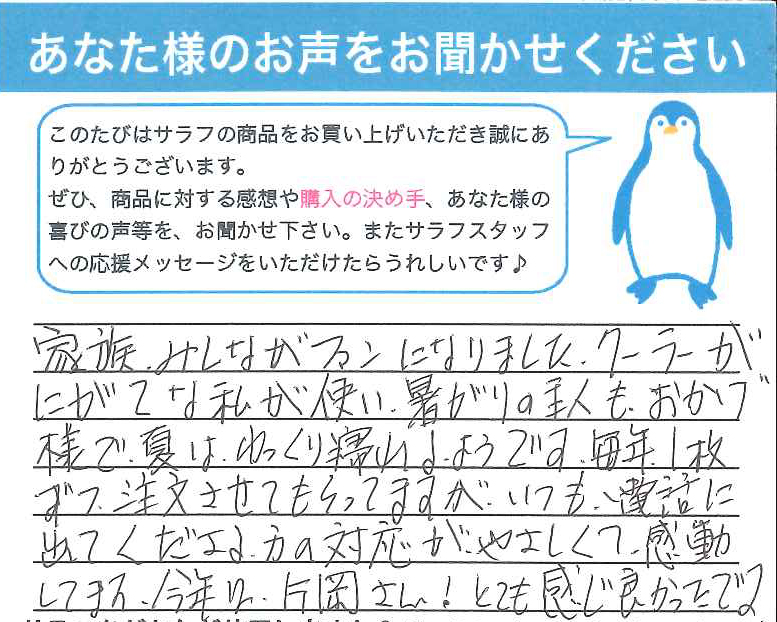 あなた様のお声をお聞かせください
このたびはサラフの商品をお買い上げいただき誠にあ
りがとうございます。
ぜひ、商品に対する感想や購入の決め手、あなた様の
喜びの声等を、お聞かせ下さい。またサラフスタッフ
への応援メッセージをいただけたらうれしいです♪
家族、みんながファンになりました。クーラーが
にがてな私が使い、暑がりの主人も、おかげ
様で、夏は、ゆっくり寝れるようです。毎年、1枚
ずつ、注文させてもらってますが、いつも、電話に
出てくださる、方の対応が、やさしくて、感動
してます。今年は、片岡さん!とても感じ良かったです